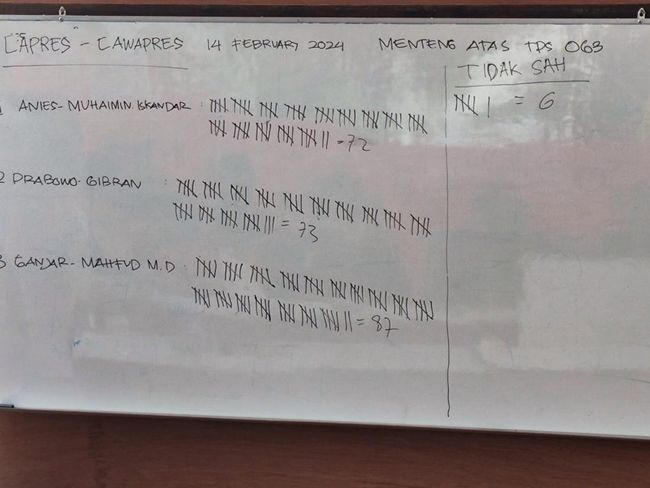 CAPRES - CAWAPRES 14 FEBRUARY 2024 MENTENG ATAS TPS 063
TIDAK SAH
= 6
1 ANIES - MUHAIMIN. ISKANDAR :
= 72
2 PRABOWO - GIBRAN :
= 73
3 GANJAR - MAHFUD M.D :
= 87